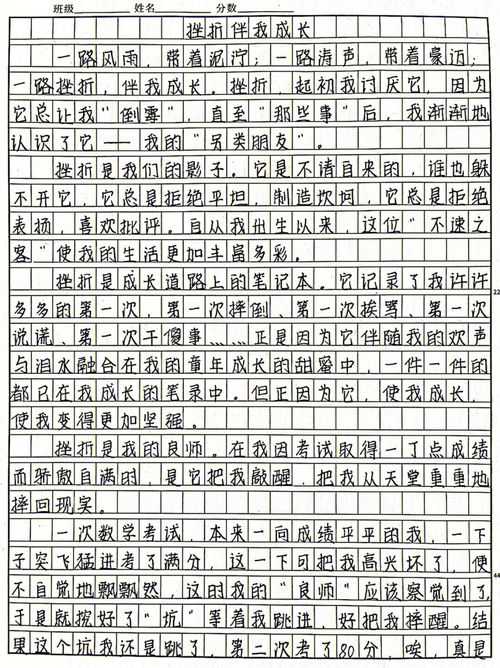 班级 姓名 分数
挫折伴我成长
一路风雨，带着泥泞；一路涛声，带着豪迈；
一路挫折，伴我成长。挫折，起初我讨厌它，因为
它总让我"倒霉"，直至"那些事"后，我渐渐地
认识了它——我的"另类朋友"。
挫折是我们的影子。它是不请自来的，谁也躲
不开它，它总是拒绝平坦，制造坎坷，它总是拒绝
表扬，喜欢批评。自从我出生以来，这位"不速之
客"使我的生活更加丰富多彩。
挫折是成长道路上的笔记本。它记录了我许许
多多的第一次，第一次摔倒、第一次挨骂、第一次
说谎、第一次干傻事……正是因为它伴随我的欢声
与泪水融合在我的童年成长的甜蜜中，一件一件的
都已在我成长的笔录中。但正因为它，使我成长，
使我变得更加坚强。
挫折是我的良师。在我因考试取得一丁点成绩
而骄傲自满时，是它把我敲醒，把我从天堂重重地
摔回现实。
一次数学考试，本来一向成绩平平的我，一下
子突飞猛进考了满分，这一下可把我高兴坏了，便
不自觉地飘飘然，这时我的"良师"应该察觉到了，
于是就挖好了"坑"等着我跳进，好把我摔醒。结
果这个坑我还是跳了，第二次考了80分，唉，真是
22
44